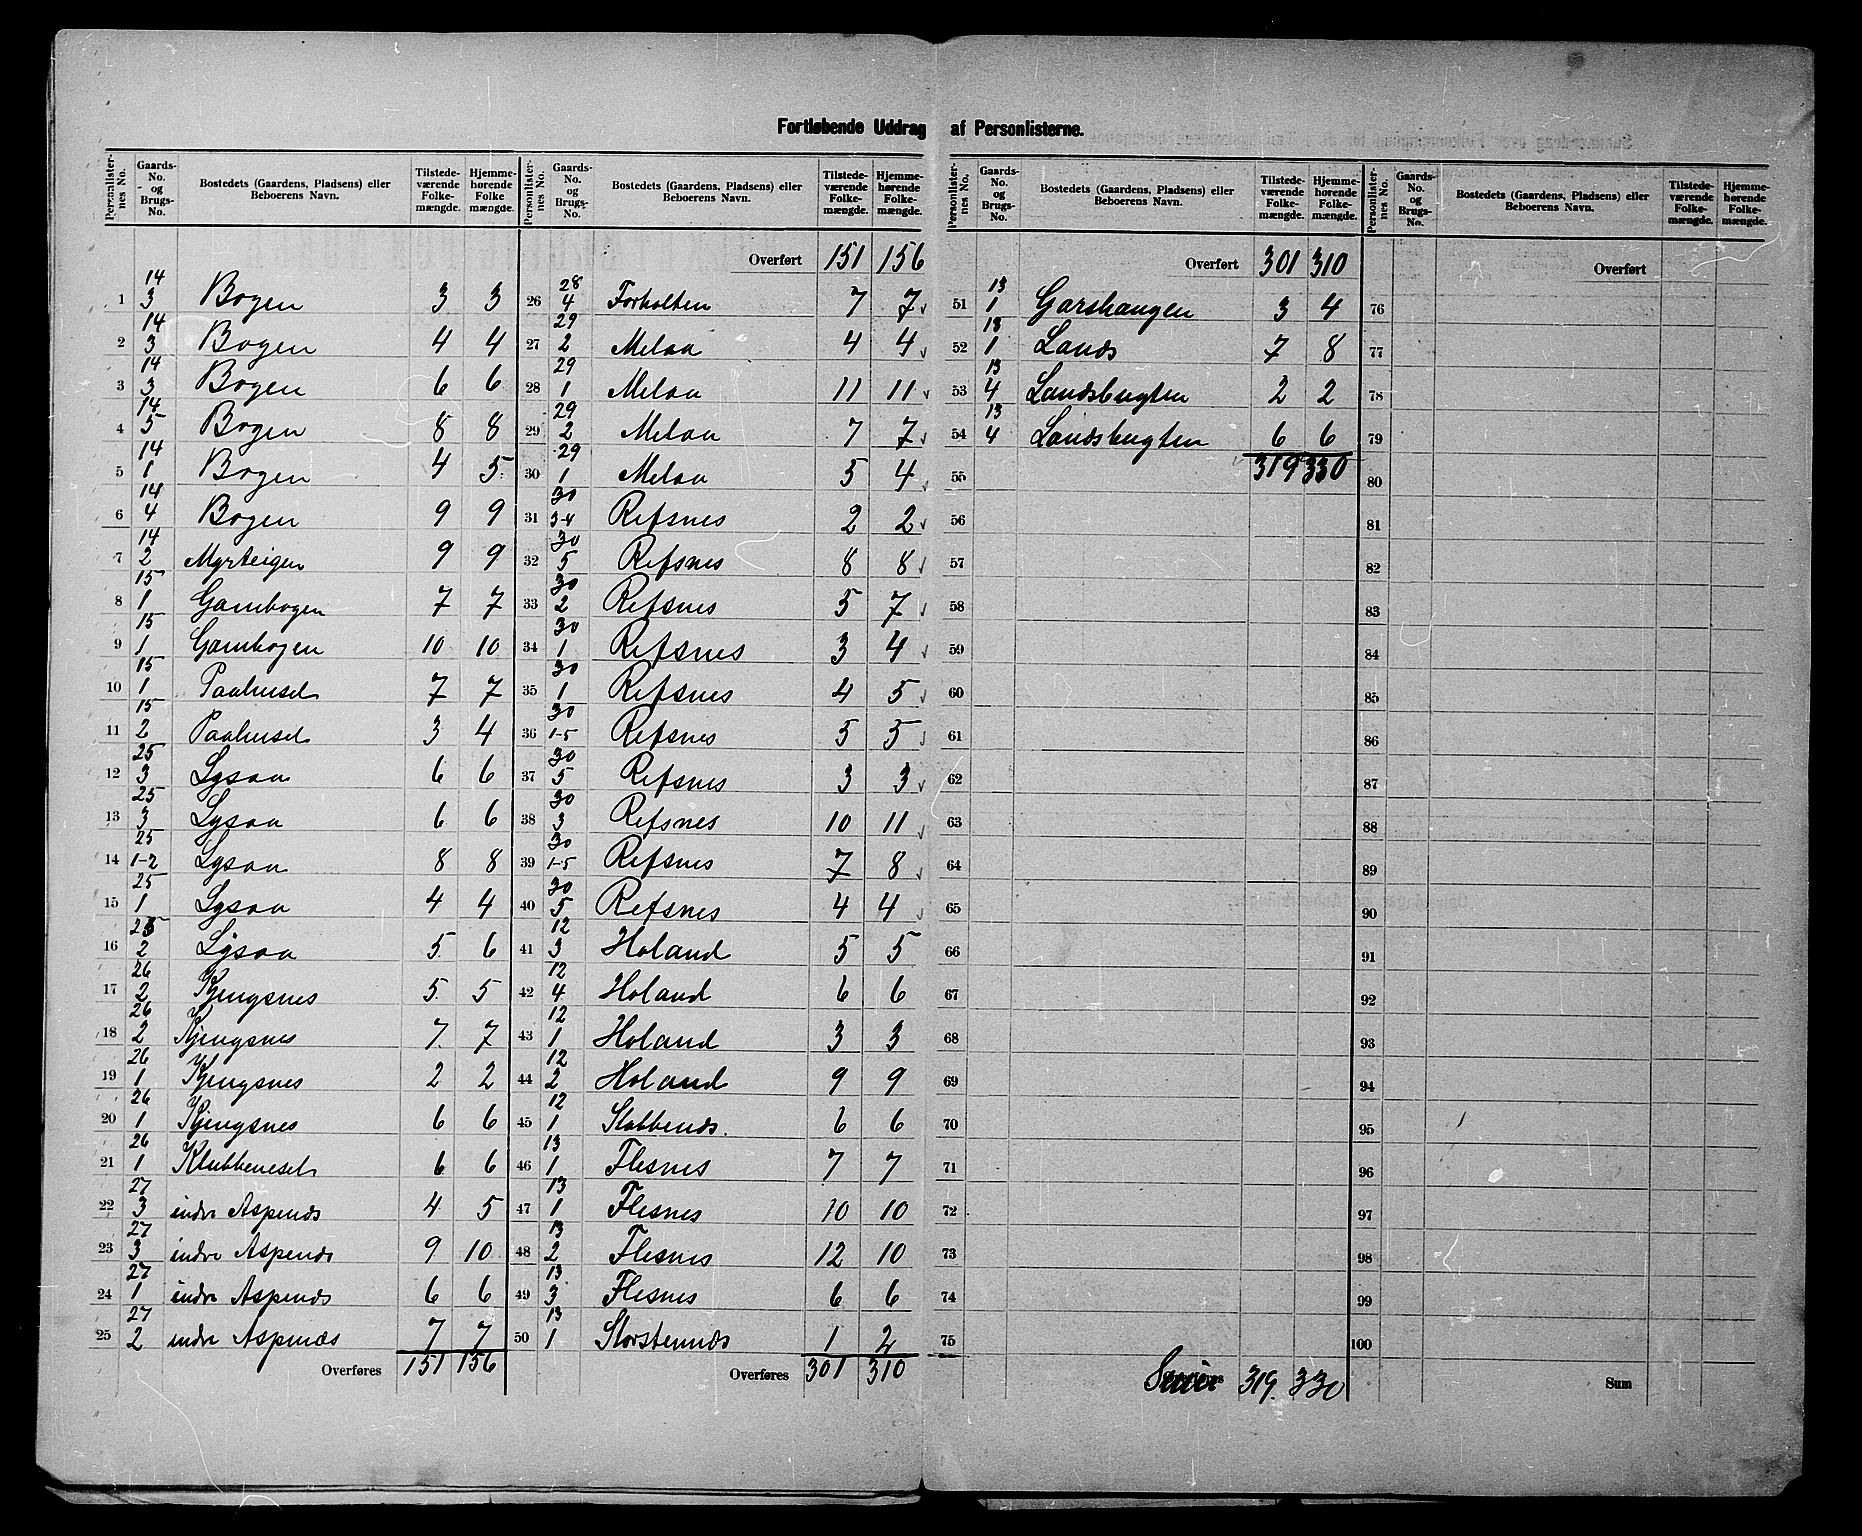 Fortløbende Uddrag af Personlisterne.
Personlister-nes No. | Gaards-No. og Brugs-No. | Bostedets (Gaardens, Pladsens) eller Beboerens Navn. | Tilstede-værende Folke-mængde. | Hjemme-hørende Folke mængde.
1 | 14 3 | Bogen | 3 | 3
2 | 14 3 | Bogen | 4 | 4
3 | 14 3 | Bogen | 6 | 6
4 | 14 5 | Bogen | 8 | 8
5 | 14 1 | Bogen | 4 | 5
6 | 14 4 | Bogen | 9 | 9
7 | 14 2 | Myrteigen | 9 | 9
8 | 15 1 | Gambogen | 7 | 7
9 | 15 1 | Gambogen | 10 | 10
10 | 15 1 | Paahusel | 7 | 7
11 | 15 2 | Paahusel | 3 | 4
12 | 25 3 | Lysaa | 6 | 6
13 | 25 3 | Lysaa | 6 | 6
14 | 25 1-2 | Lysaa | 8 | 8
15 | 25 1 | Lysaa | 4 | 4
16 | 25 2 | Lysaa | 5 | 6
17 | 26 2 | Kjengsnes | 5 | 5
18 | 26 2 | Kjengsnes | 7 | 7
19 | 26 1 | Kjengsnes | 2 | 2
20 | 26 1 | Kjengsnes | 6 | 6
21 | 26 1 | Klubbenesel | 6 | 6
22 | 27 3 | indre Aspenæs | 4 | 5
23 | 27 3 | indre Aspenæs | 9 | 10
24 | 27 1 | indre Aspenæs | 6 | 6
25 | 27 2 | indre Aspenæs | 7 | 7
Overføres | 151 | 156
Personlister-nes No. | Gaards-No. og Brugs-No. | Bostedets (Gaardens, Pladsens) eller Beboerens Navn. | Tilstede-værende Folke-mængde. | Hjemme-hørende Folke-mængde.
Overført | 151 | 156
26 | 28 4 | Forholten | 7 | 7
27 | 29 2 | Melaa | 4 | 4
28 | 29 1 | Melaa | 11 | 11
29 | 29 2 | Melaa | 7 | 7
30 | 29 1 | Melaa | 5 | 4
31 | 30 3-4 | Refsnes | 2 | 2
32 | 30 5 | Refsnes | 8 | 8
33 | 30 2 | Refsnes | 5 | 7
34 | 30 1 | Refsnes | 3 | 4
35 | 30 1 | Refsnes | 4 | 5
36 | 30 1-5 | Refsnes | 5 | 5
37 | 30 5 | Refsnes | 3 | 3
38 | 30 3 | Refsnes | 10 | 11
39 | 30 1-5 | Refsnes | 7 | 8
40 | 30 5 | Refsnes | 4 | 4
41 | 12 3 | Holand | 5 | 5
42 | 12 4 | Holand | 6 | 6
43 | 12 1 | Holand | 3 | 3
44 | 12 2 | Holand | 9 | 9
45 | 12 1 | Stabbenæs. | 6 | 6
46 | 13 1 | Flesnes | 7 | 7
47 | 13 1 | Flesnes | 10 | 10
48 | 13 2 | Flesnes | 12 | 10
49 | 13 3 | Flesnes | 6 | 6
50 | 13 1 | Storstennæs | 1 | 2
Overføres | 301 | 310
Personlister-nes No. | Gaards-No. og Brugs-No. | Bostedets (Gaardens, Pladsens) eller Beboerens Navn. | Tilstede-værende Folke-mængde. | Hjemme-hørende Folke-mængde.
Overført | 301 | 310
51 | 13 1 | Garshaugen | 3 | 4
52 | 13 1 | Lands | 7 | 8
53 | 13 4 | Landsbugten | 2 | 2
54 | 13 4 | Landsbugten | 6 | 6
55 | 319 | 330
56
57
58
59
60
61
62
63
64
65
66
67
68
69
70
71
72
73
74
75
319. 330
Personlister-nes No. | Gaards-No. og Brugs-No. | Bostedets (Gaardens, Pladsens) eller Beboerens Navn. | Tilstede-værende Folke-mængde. | Hjemme-hørende Folke-mængde.
Overført
76
77
78
79
80
81
82
83
84
85
86
87
88
89
90
91
92
93
94
95
96
97
98
99
100
Sum